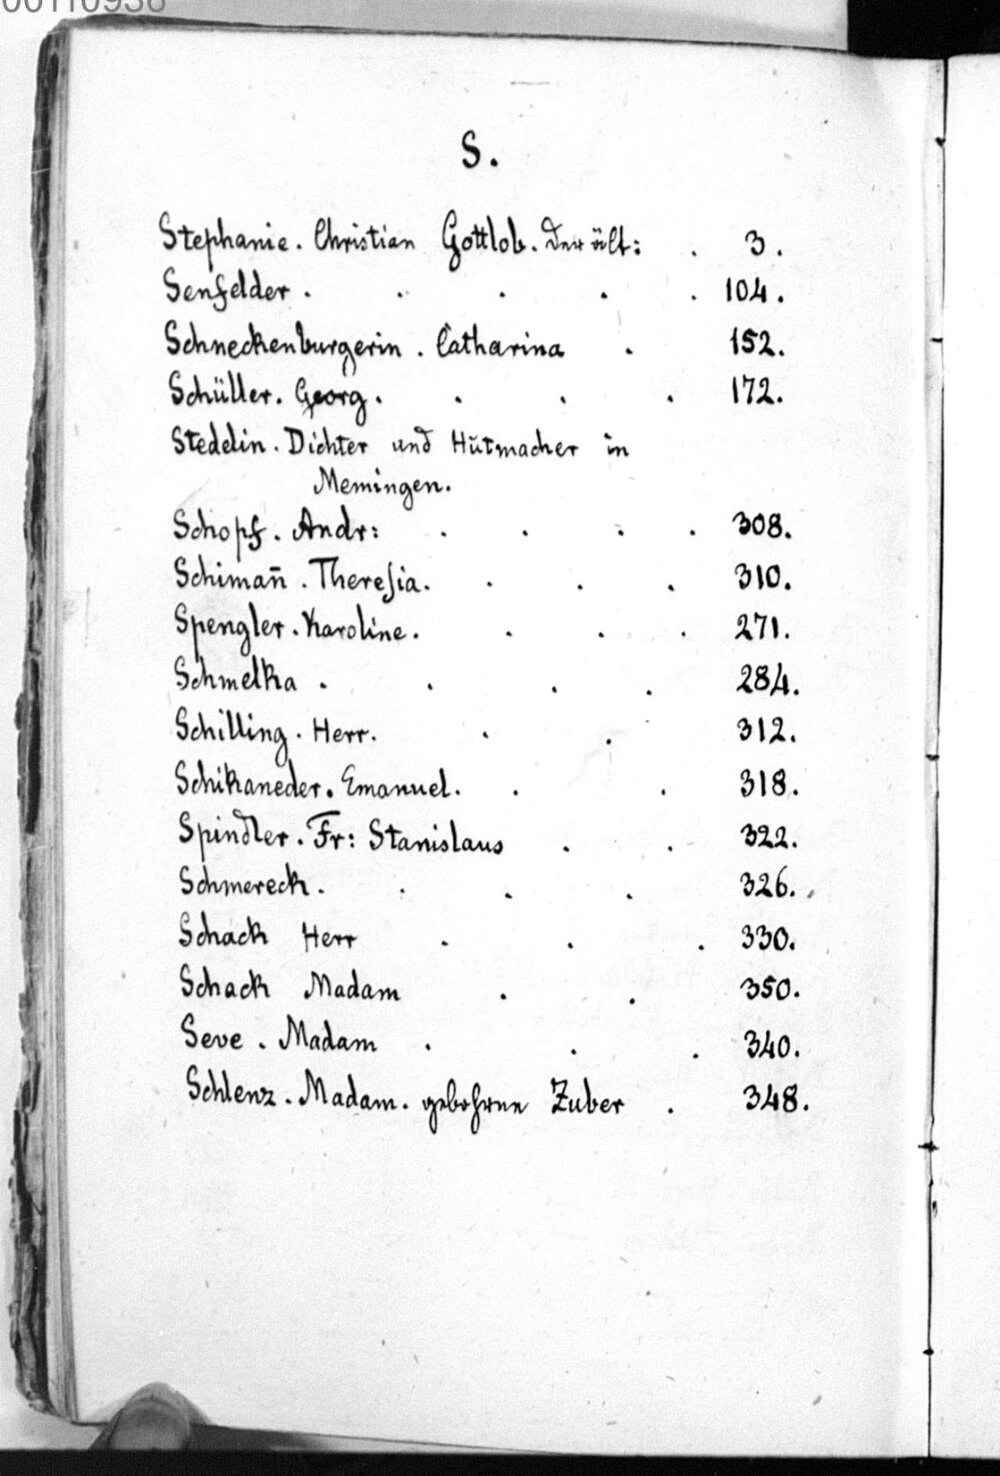 S.
Stephanie. Christian Gottlob. Der ält: . 3.
Senfelder . . . . . 104.
Schneckenburgerin . Catharina . 152.
Schüller. Georg. . . . 172.
Stedelin. Dichter und Hŭtmacher in
Memingen.
Schopf. Andr: . . . . 308.
Schimañ . Theresia. . . . 310.
Spengler. Karoline. . . . 271.
Schmelka . . . . 284.
Schilling. Herr. . . 312.
Schikaneder. Emanuel. . . 318.
Spindler. Fr: Stanislaus . . 322.
Schmereck. . . . 326.
Schack Herr . . . 330.
Schack Madam . . 350.
Seve . Madam . . . 340.
Schlenz. Madam. gebohrne Zuber . 348.